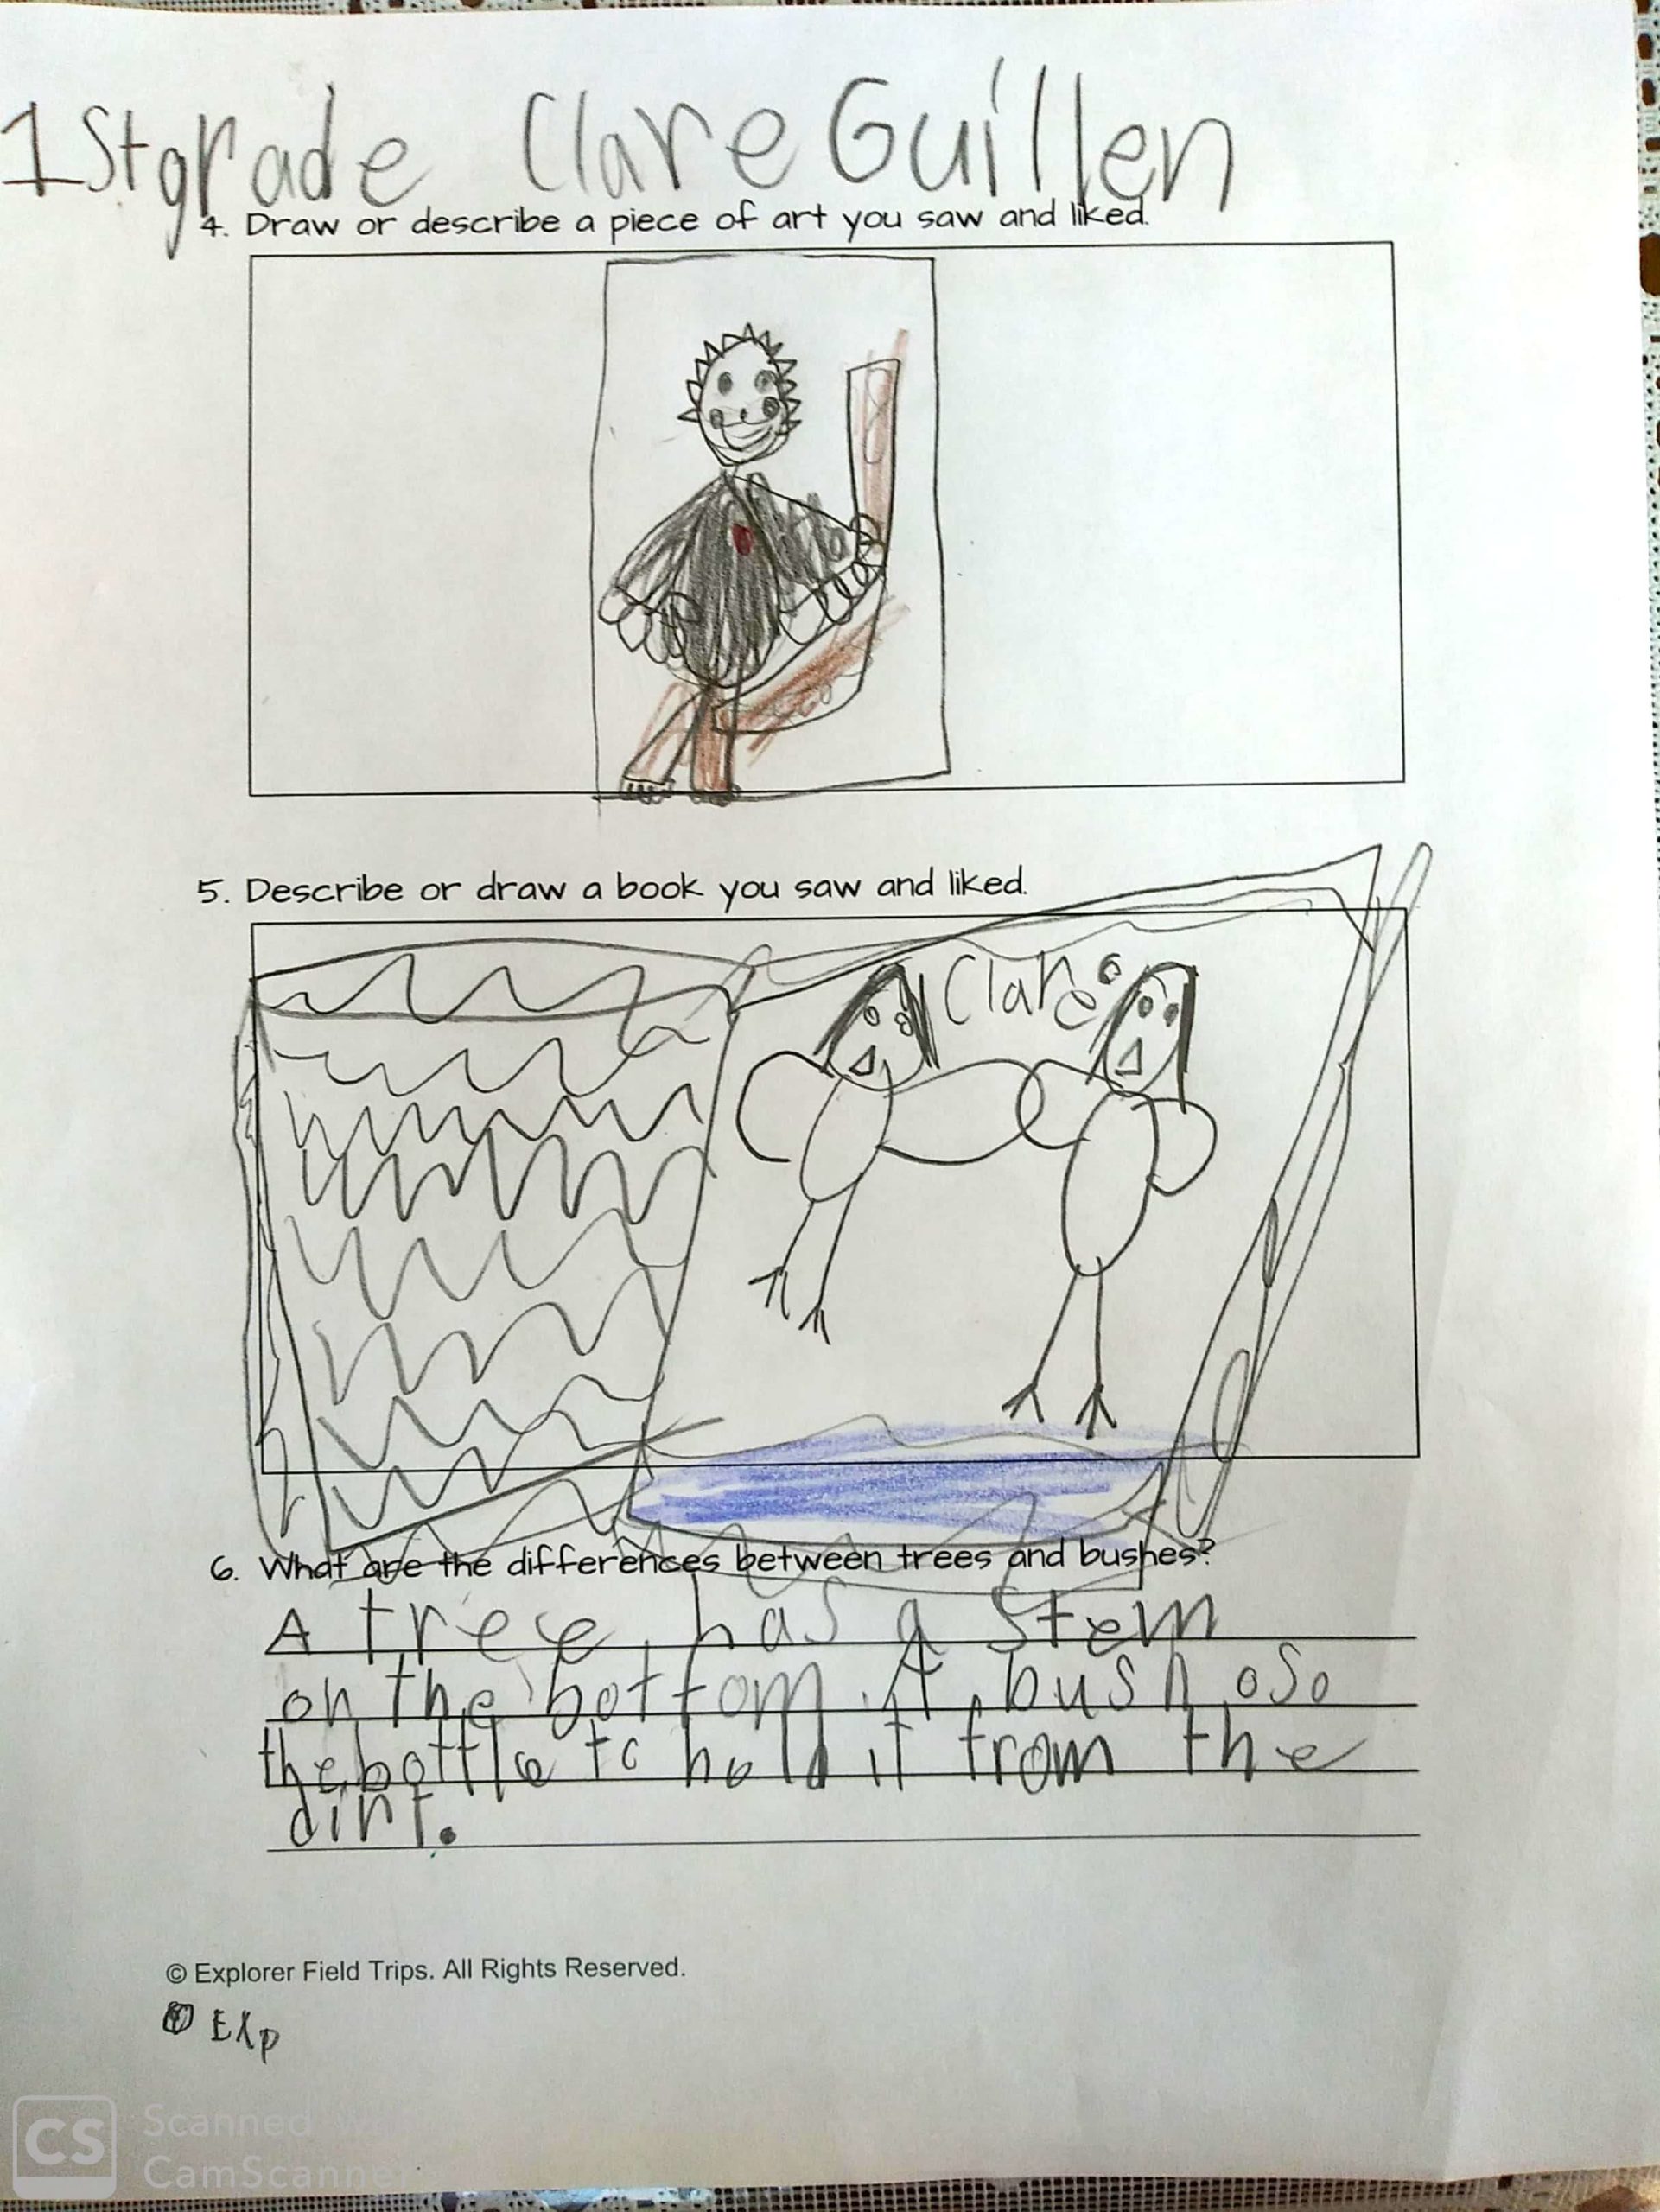 1st grade Clare Guillen
4. Draw or describe a piece of art you saw and liked.
5. Describe or draw a book you saw and liked.
Clare
6. What are the differences between trees and bushes?
A tree has a stem
on the bottom. A bush oso
the bottle to hold it from the
dirt.
© Explorer Field Trips. All Rights Reserved.
© Exp
CS Scanned with
CamScanner